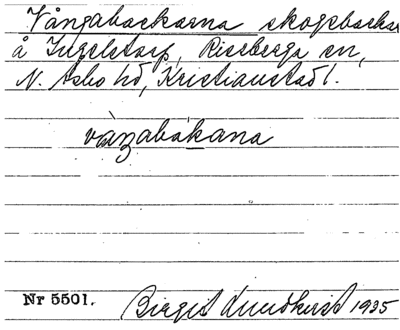 Vångabackarna skogsbackar
å Ingelstorp, Riseberga sn,
N. Åsbo hd, Kristianstad l.
våŋabakana
Nr 5501. Birgit Lundkvist 1935